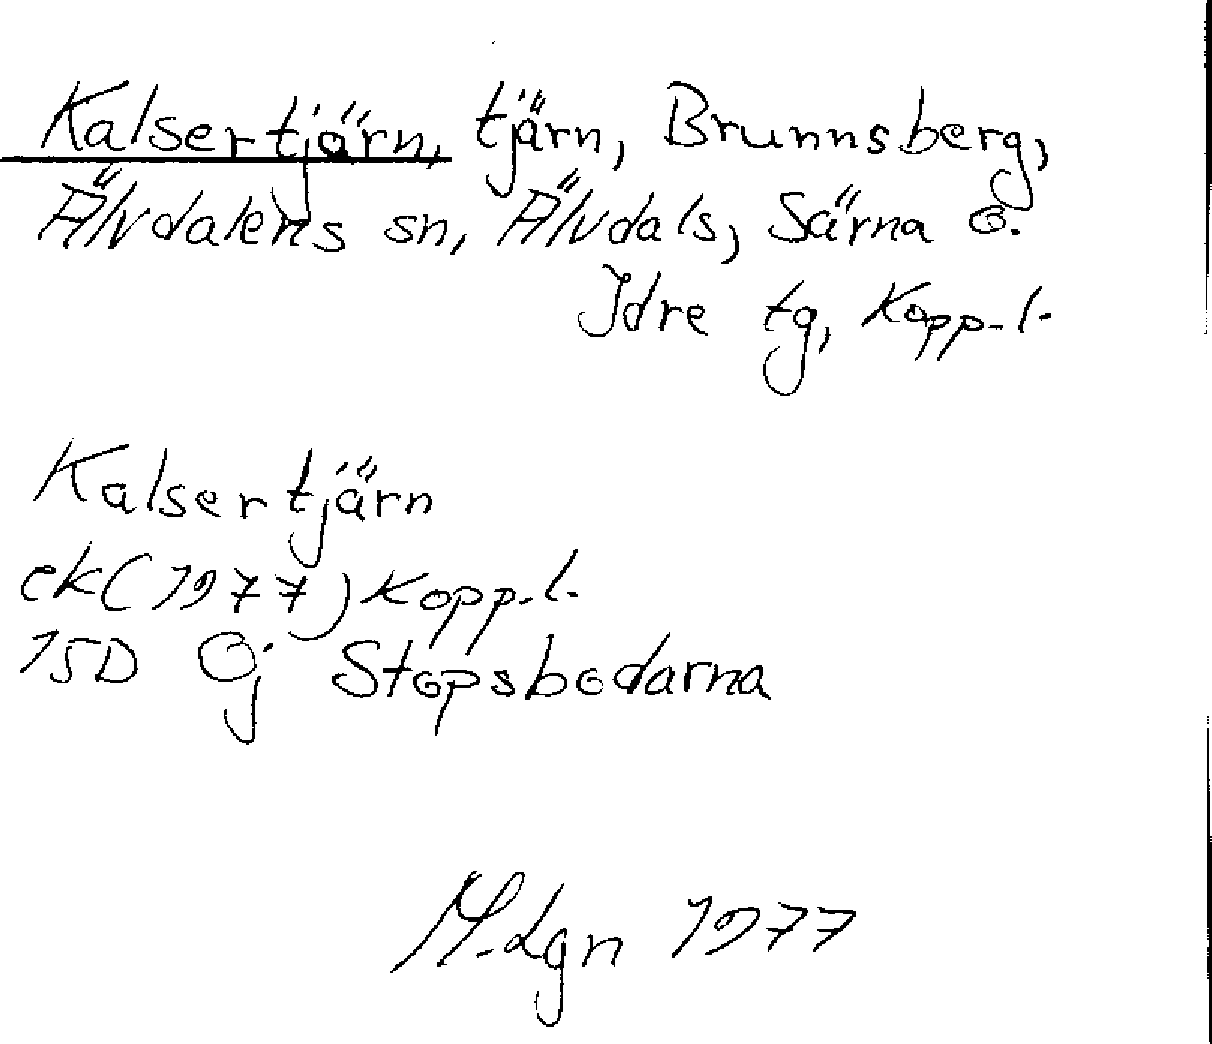 Kalsertjärn, tjärn, Brunnsberg,
Älvdalens sn, Älvdals, Särna o.
Idre tg, Kopp-l.
Kalsertjärn
ek(1977) Kopp.l.
15D Oj Stopsbodarna
M.Lgn 1977